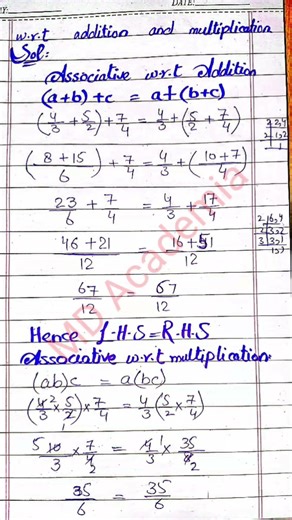 DATE:
w.r.t addition and multiplication
Sol:
Associative w.r.t Addition
(a+b)+c = a+(b+c)
(4/3 + 5/2) + 7/4 = 4/3 + (5/2 + 7/4)
2 2,4
2 1,2
1
(8+15/6) + 7/4 = 4/3 + (10+7/4)
23/6 + 7/4 = 4/3 + 17/4
2 6,4
2 3,2
3 3,1
1,1
46+21/12 = 16+51/12
67/12 67/12
Hence L.H.S=R.H.S
Associative w.r.t multiplication.
(ab)c = a(bc)
(4/3 × 5/2) × 7/4 = 4/3 (5/2 × 7/4)
5 10/3 × 7/4 2 = 4 1/3 × 35/8 2
35/6 = 35/6
MD Academia